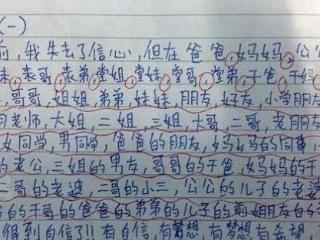 (一)
前,我失去了信心,但在爸爸,妈妈,公公
妹,表哥,表弟,堂姐,堂妹,堂哥,堂弟,干爸,干妈
,哥哥,姐姐,弟弟,妹妹,朋友,好友,小学朋友
老师,大姐,二姐,三姐,大哥,二哥,老朋友
女同学,男同学,爸爸的朋友,妈妈的同事,
的老公,三姐的男友,哥哥的干爸,妈妈的干
二哥的老婆,二哥的小三,公公的儿子的老婆
的干哥的爸爸的弟弟的儿子的前姐朋友的
得到自信了!!有自信,有梦想,有梦想有希望,